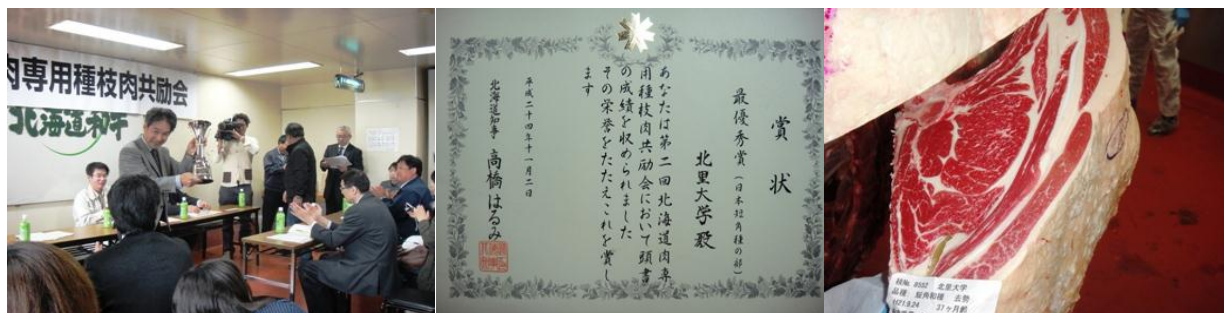 肉専用種枝肉共励会
北海道和牛
賞状
最優秀賞(日本短角種の部)
北里大学殿
あなたは第二回北海道肉専
用種枝肉共励会において頭書
の成績を収められました
その栄誉をたたえこれを賞し
ます
平成二十四年十一月二日
北海道知事 高橋はるみ
北里大学
品種 短角和種 去勢
H21.9.24 37ヶ月齢